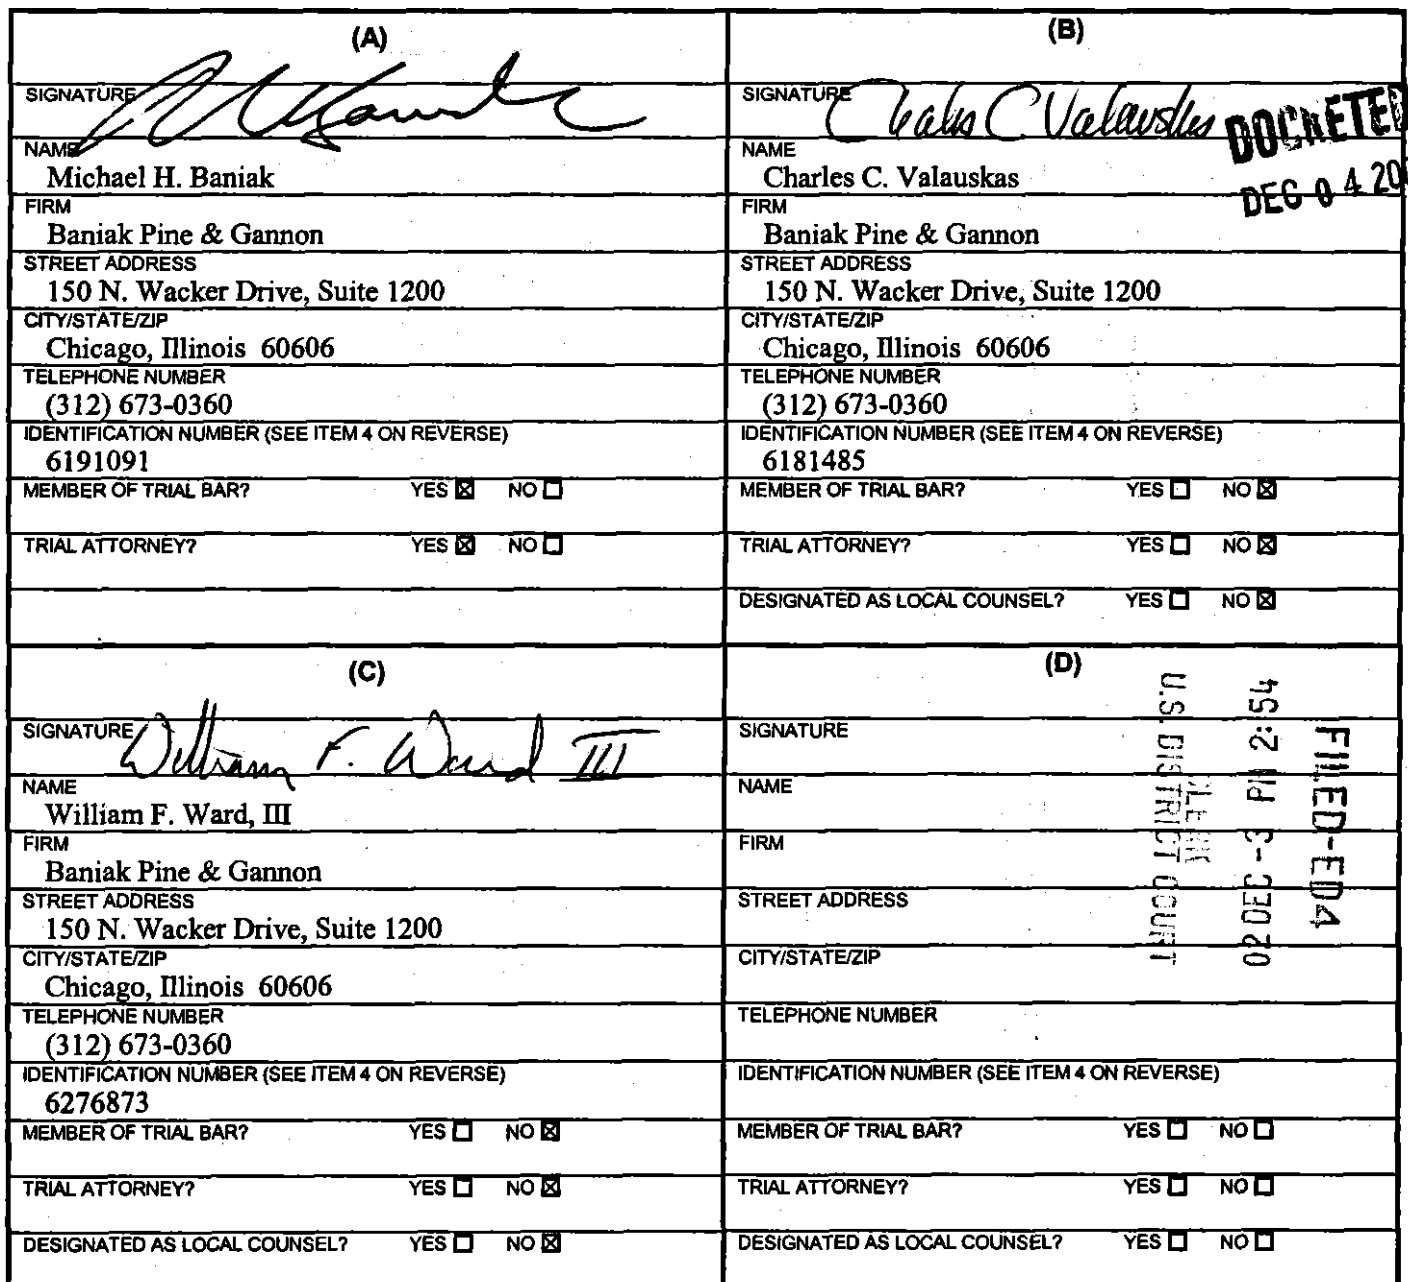 (A)
SIGNATURE
NAME
Michael H. Baniak
FIRM
Baniak Pine & Gannon
STREET ADDRESS
150 N. Wacker Drive, Suite 1200
CITY/STATE/ZIP
Chicago, Illinois 60606
TELEPHONE NUMBER
(312) 673-0360
IDENTIFICATION NUMBER (SEE ITEM 4 ON REVERSE)
6191091
MEMBER OF TRIAL BAR? YES ☒ NO ☐
TRIAL ATTORNEY? YES ☒ NO ☐
(B)
SIGNATURE Charles C Valauskas
DOCKETED
DEC 04 20
NAME
Charles C. Valauskas
FIRM
Baniak Pine & Gannon
STREET ADDRESS
150 N. Wacker Drive, Suite 1200
CITY/STATE/ZIP
Chicago, Illinois 60606
TELEPHONE NUMBER
(312) 673-0360
IDENTIFICATION NUMBER (SEE ITEM 4 ON REVERSE)
6181485
MEMBER OF TRIAL BAR? YES ☐ NO ☒
TRIAL ATTORNEY? YES ☐ NO ☒
DESIGNATED AS LOCAL COUNSEL? YES ☐ NO ☒
(C)
SIGNATURE William F. Ward III
NAME
William F. Ward, III
FIRM
Baniak Pine & Gannon
STREET ADDRESS
150 N. Wacker Drive, Suite 1200
CITY/STATE/ZIP
Chicago, Illinois 60606
TELEPHONE NUMBER
(312) 673-0360
IDENTIFICATION NUMBER (SEE ITEM 4 ON REVERSE)
6276873
MEMBER OF TRIAL BAR? YES ☐ NO ☒
TRIAL ATTORNEY? YES ☐ NO ☒
DESIGNATED AS LOCAL COUNSEL? YES ☐ NO ☒
(D)
SIGNATURE
NAME
FIRM
STREET ADDRESS
CITY/STATE/ZIP
TELEPHONE NUMBER
IDENTIFICATION NUMBER (SEE ITEM 4 ON REVERSE)
MEMBER OF TRIAL BAR? YES ☐ NO ☐
TRIAL ATTORNEY? YES ☐ NO ☐
DESIGNATED AS LOCAL COUNSEL? YES ☐ NO ☐
FILED-ED4
02 DEC -3 PM 2:54
CLERK
U.S. DISTRICT COURT